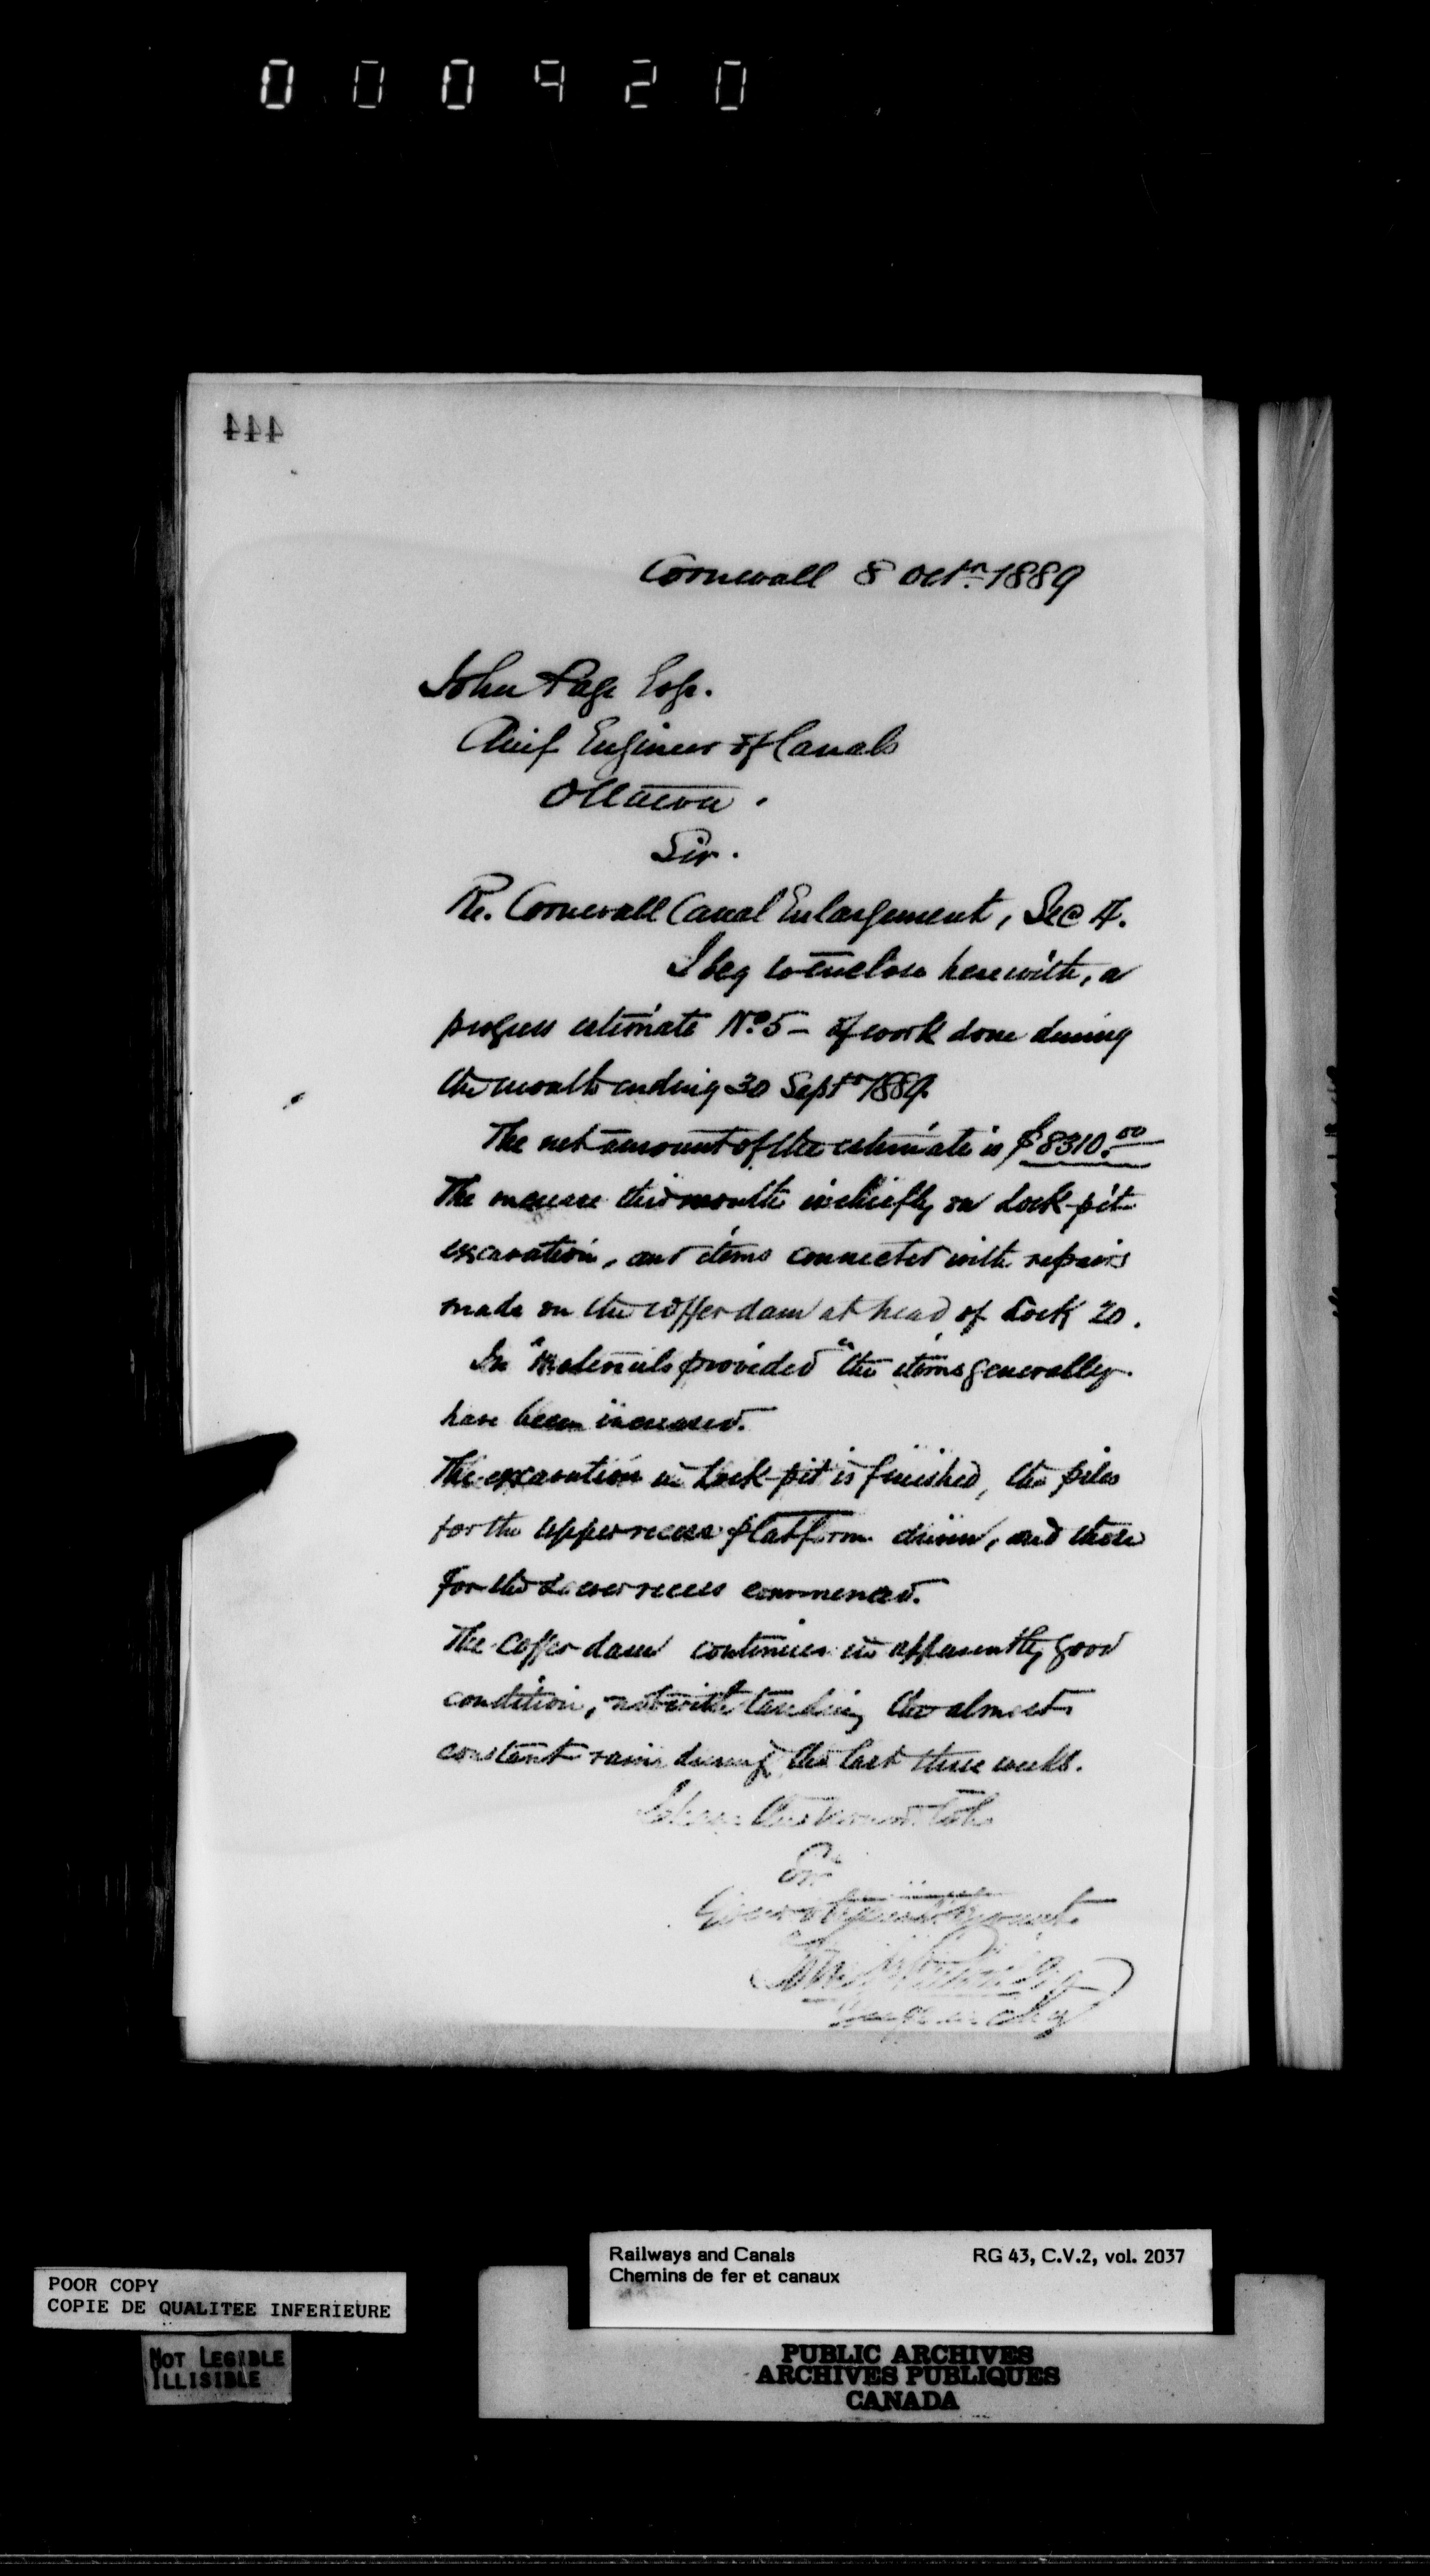 000920
444
Cornwall 8 Octr. 1889
John Page Esq.
Chief Engineer of Canals
Ottawa.
Sir.
Re. Cornwall Canal Enlargement, Sec 4.
I beg to enclose herewith, a
progress estimate No. 5 - of work done during
the month ending 30 Septr 1889.
The net amount of the estimate is $8310.00
The increase this month is chiefly on Lock-pit
excavation, and items connected with repairs
made on the coffer dam at head of Lock 20.
In "Materials provided" the items generally
have been increased.
The excavation in Lock-pit is finished, the piles
for the upper recess platform driven, and those
for the Lower recess commenced.
The Coffer dam continues in apparently good
condition, notwithstanding the almost
constant rain during the last three weeks.
I have the honor to be
Sir
Your obedient servant
POOR COPY
COPIE DE QUALITEE INFERIEURE
NOT LEGIBLE
ILLISIBLE
Railways and Canals RG 43, C.V.2, vol. 2037
Chemins de fer et canaux
PUBLIC ARCHIVES
ARCHIVES PUBLIQUES
CANADA